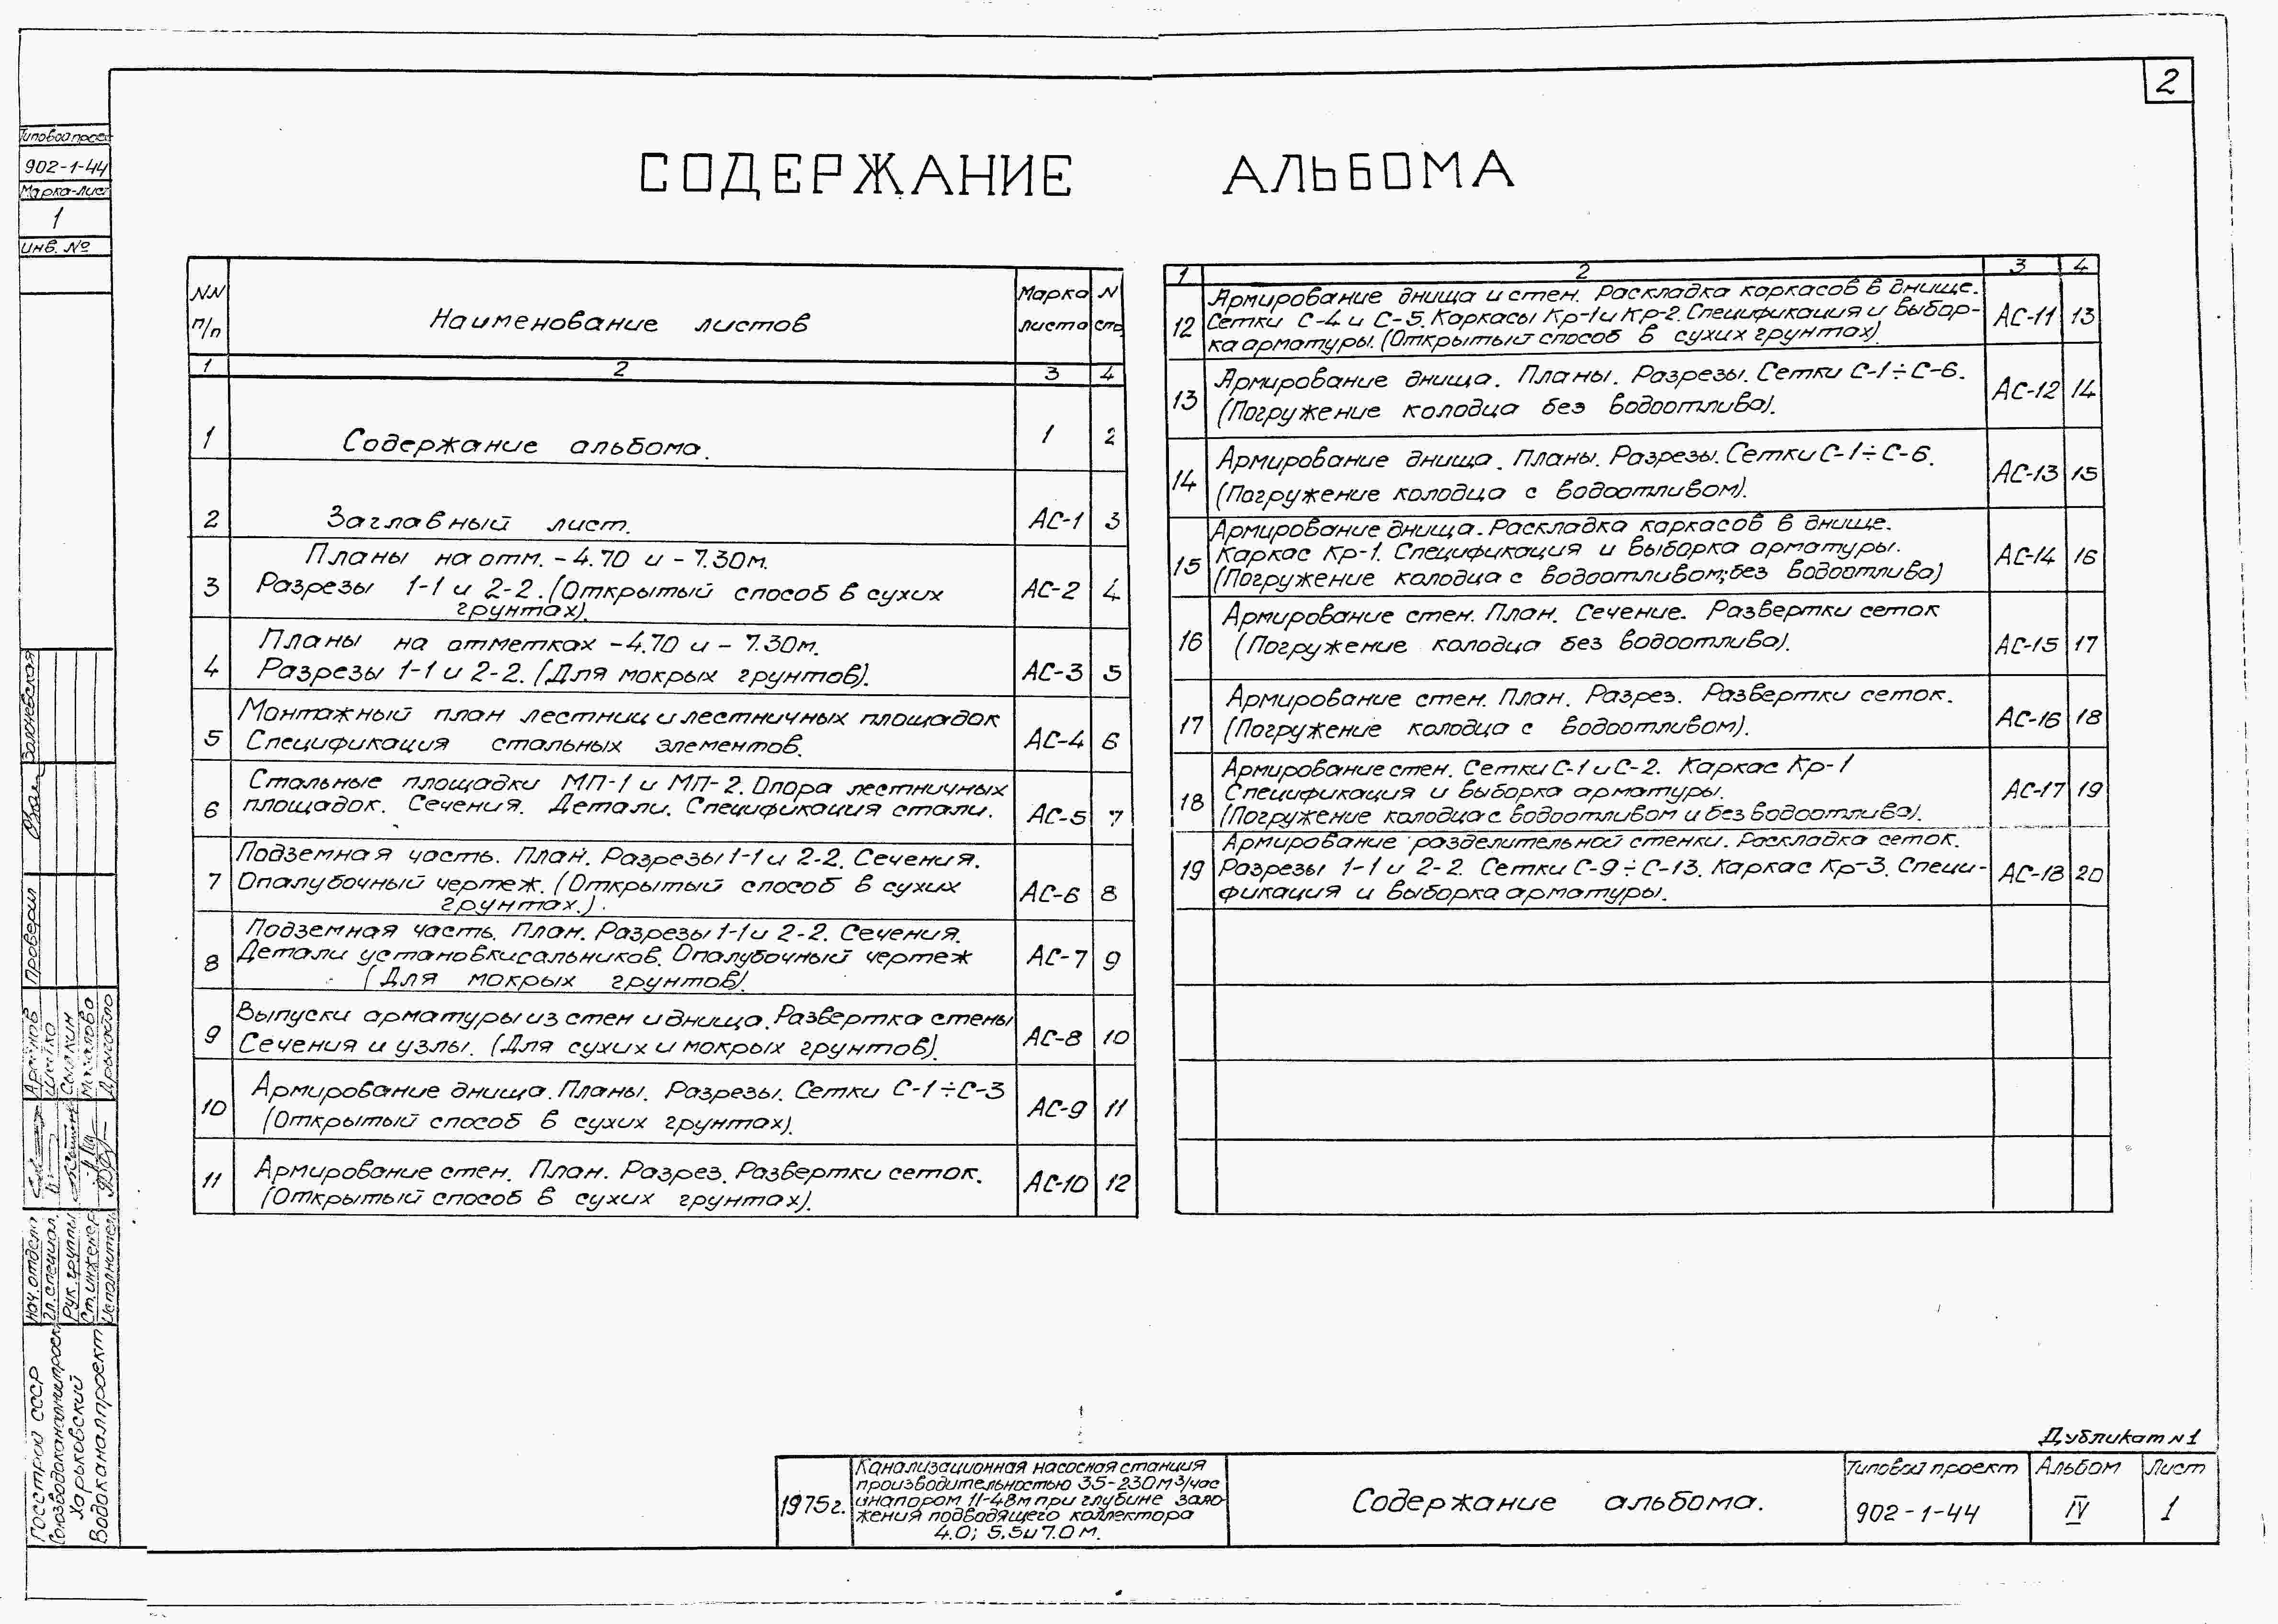 2
Типовой проек
902-1-44
Марка-лист
1
Инв. №
СОДЕРЖАНИЕ АЛЬБОМА
NN п/п
Наименование листов
Марка листа
N стр.
1 2 3 4
1 Содержание альбома. 1 2
2 Заглавный лист. АС-1 3
Планы на отм. -4.70 и -7.30м.
3 Разрезы 1-1 и 2-2. (Открытый способ в сухих АС-2 4
грунтах).
Планы на отметках -4.70 и -7.30м.
4 Разрезы 1-1 и 2-2. (Для мокрых грунтов). АС-3 5
Монтажный план лестниц и лестничных площадок
5 Спецификация стальных элементов. АС-4 6
Стальные площадки МП-1 и МП-2. Опора лестничных
6 площадок. Сечения. Детали. Спецификация стали. АС-5 7
Подземная часть. План. Разрезы 1-1 и 2-2. Сечения.
7 Опалубочный чертеж. (Открытый способ в сухих АС-6 8
грунтах.).
Подземная часть. План. Разрезы 1-1 и 2-2. Сечения.
8 Детали установки сальников. Опалубочный чертеж АС-7 9
(Для мокрых грунтов).
Выпуски арматуры из стен и днища. Развертка стены
9 Сечения и узлы. (Для сухих и мокрых грунтов). АС-8 10
Армирование днища. Планы. Разрезы. Сетки С-1÷С-3
10 (Открытый способ в сухих грунтах). АС-9 11
Армирование стен. План. Разрез. Развертки сеток.
11 (Открытый способ в сухих грунтах). АС-10 12
1 2 3 4
Армирование днища и стен. Раскладка каркасов в днище.
12 Сетки С-4 и С-5. Каркасы Кр-1 и Кр-2. Спецификация и выбор- АС-11 13
ка арматуры. (Открытый способ в сухих грунтах).
Армирование днища. Планы. Разрезы. Сетки С-1÷С-6.
13 (Погружение колодца без водоотлива). АС-12 14
Армирование днища. Планы. Разрезы. Сетки С-1÷С-6.
14 (Погружение колодца с водоотливом). АС-13 15
Армирование днища. Раскладка каркасов в днище.
15 Каркас Кр-1. Спецификация и выборка арматуры. АС-14 16
(Погружение колодца с водоотливом; без водоотлива)
Армирование стен. План. Сечение. Развертки сеток
16 (Погружение колодца без водоотлива). АС-15 17
Армирование стен. План. Разрез. Развертки сеток.
17 (Погружение колодца с водоотливом). АС-16 18
Армирование стен. Сетки С-1 и С-2. Каркас Кр-1
18 Спецификация и выборка арматуры. АС-17 19
(Погружение колодца с водоотливом и без водоотлива).
Армирование разделительной стенки. Раскладка сеток.
19 Разрезы 1-1 и 2-2. Сетки С-9÷С-13. Каркас Кр-3. Специ- АС-18 20
фикация и выборка арматуры.
Проверил
Нач. отдела
Гл. специал.
Рук. группы
Ст. инженер
Исполнитель
Госстрой СССР
Союзводоканалниипроект
Харьковский
Водоканалпроект
Дубликат N1
1975г.
Канализационная насосная станция
производительностью 35-230м3/час
и напором 11-48м при глубине зало-
жения подводящего коллектора
4.0; 5.5 и 7.0 м.
Содержание альбома.
Типовой проект
902-1-44
Альбом
IV
Лист
1